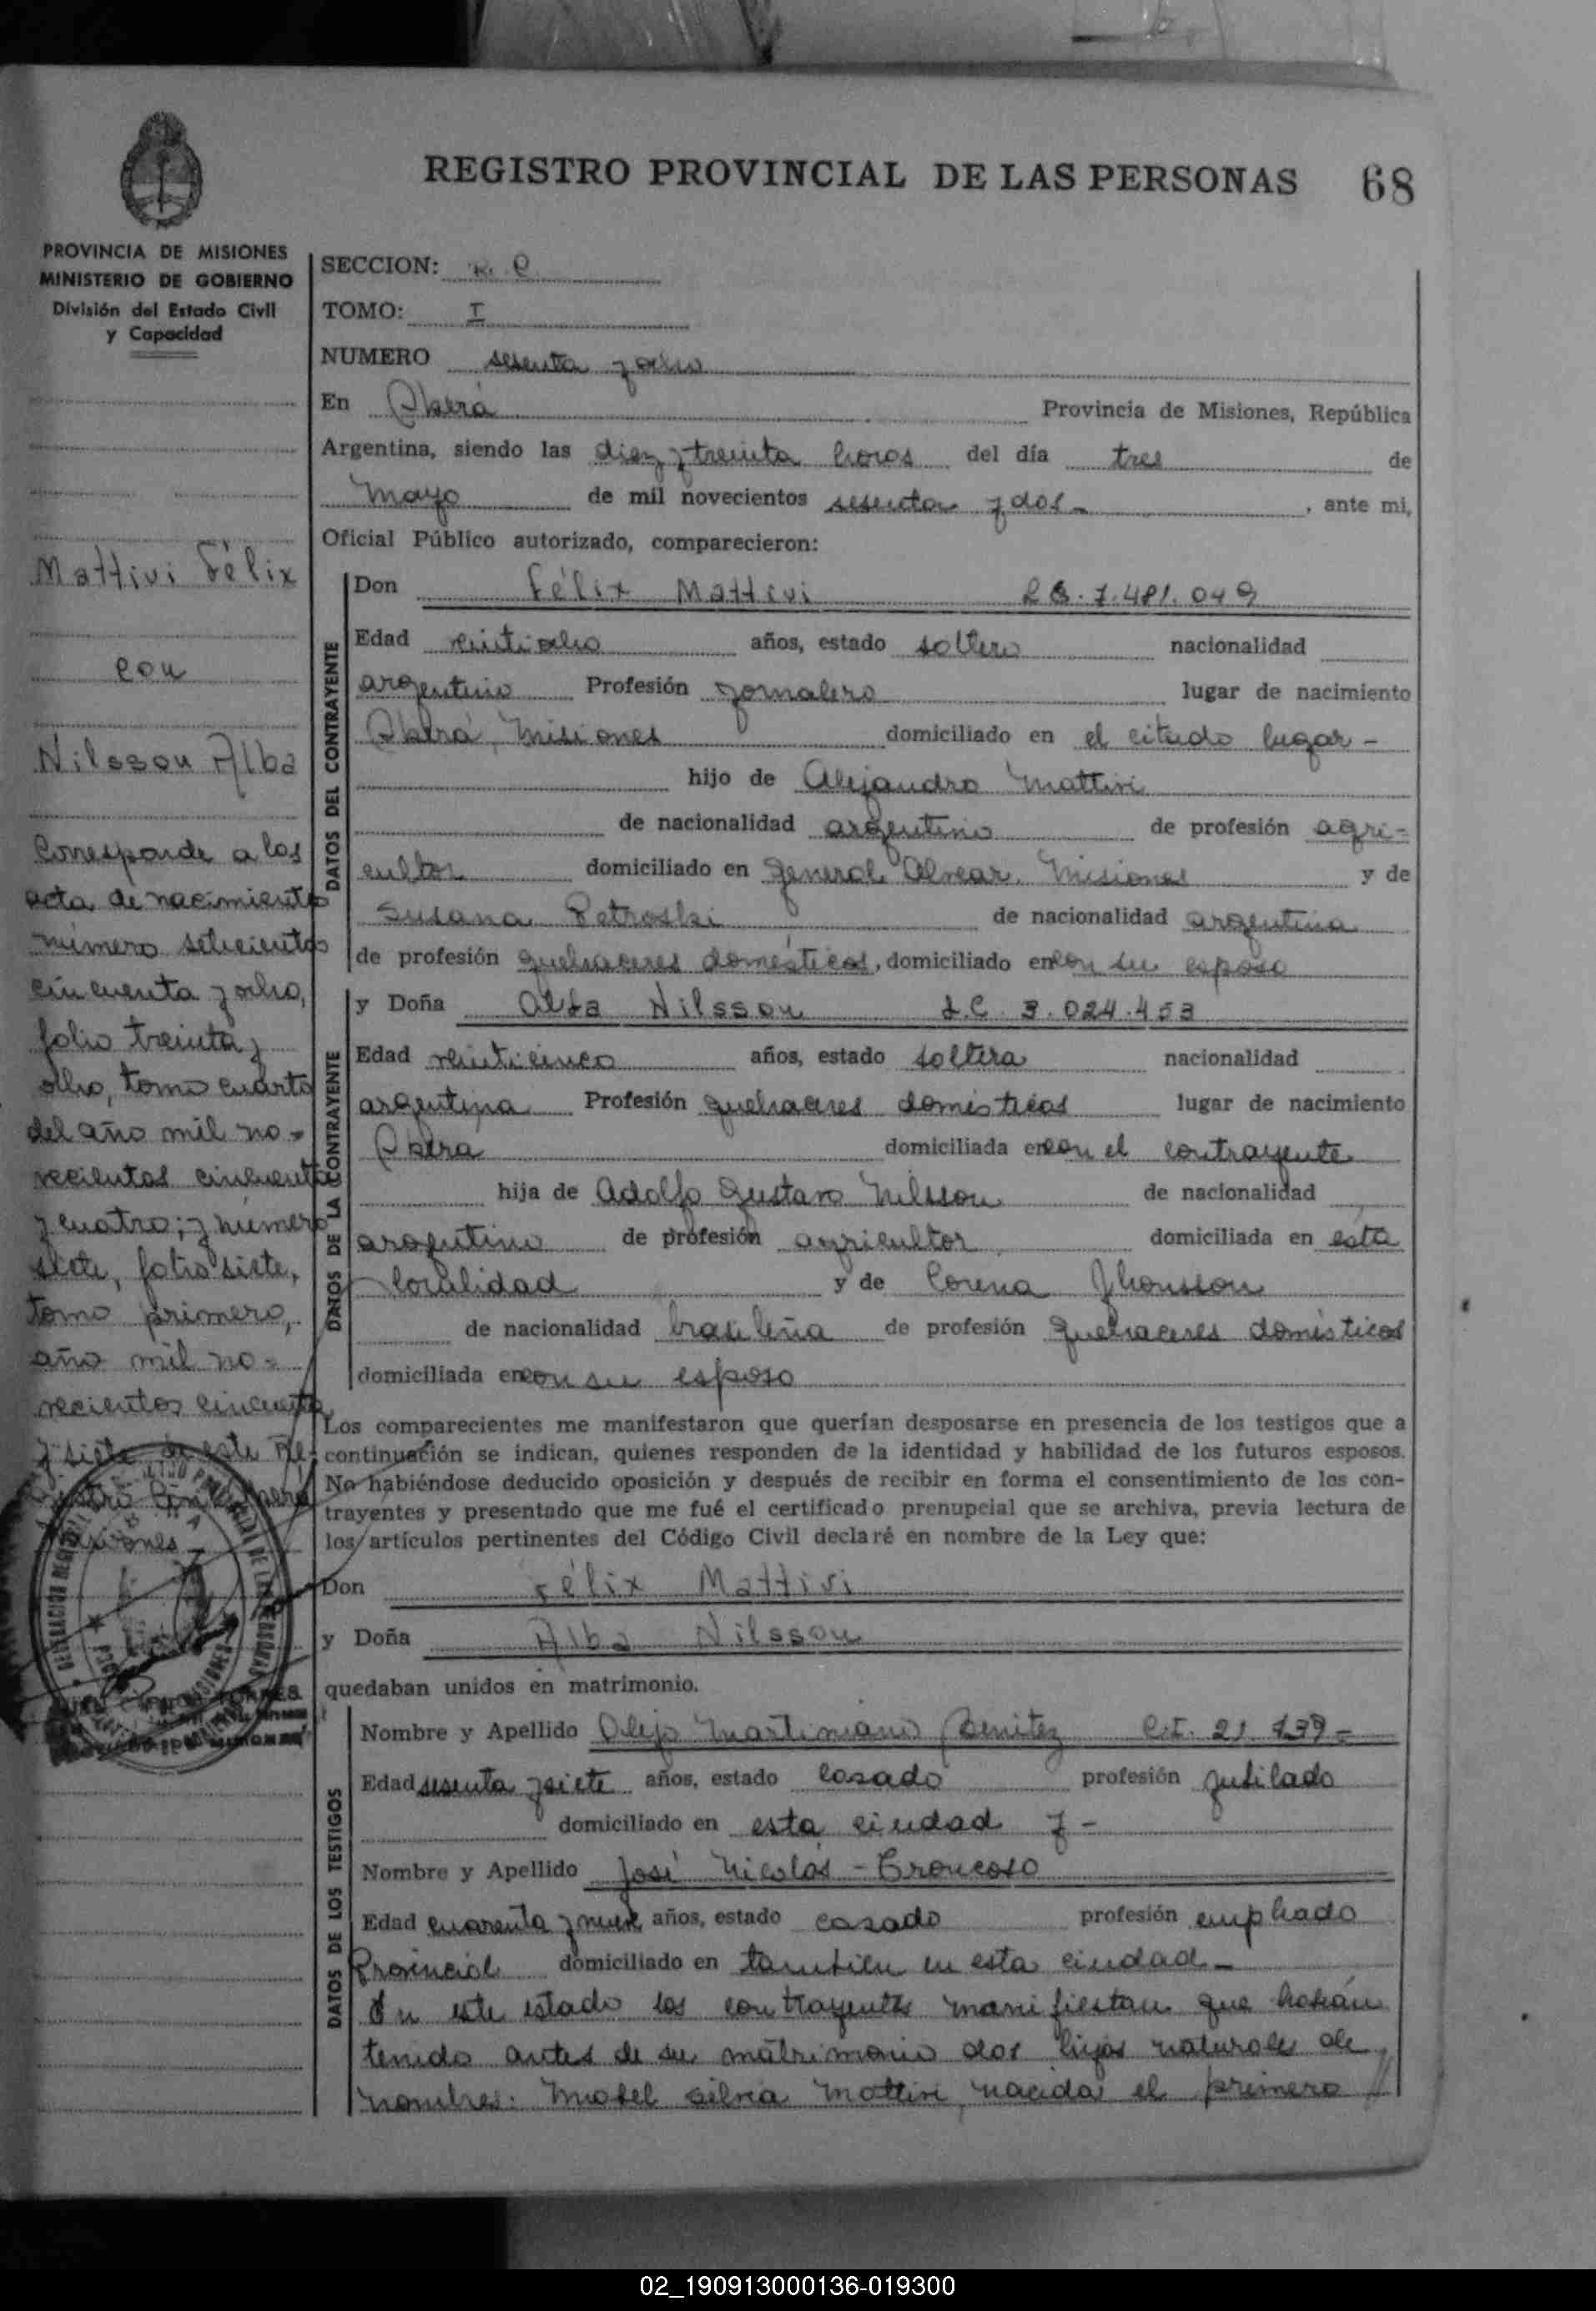 REGISTRO PROVINCIAL DE LAS PERSONAS 68
PROVINCIA DE MISIONES
MINISTERIO DE GOBIERNO
División del Estado Civil
y Capacidad
Mattivi Félix
con
Nilsson Alba
Corresponde a los
acta de nacimiento
número setecientos
cincuenta y ocho,
folio treinta y
ocho, tomo cuarto
del año mil no-
vecientos cincuenta
y cuatro; y número
siete, folio siete,
tomo primero,
año mil no-
vecientos cincuenta
y siete de este Re-
SECCION:
TOMO: I
NUMERO sesenta y ocho
En Oberá Provincia de Misiones, República
Argentina, siendo las diez y treinta horas del día tres de
Mayo de mil novecientos sesenta y dos- , ante mi,
Oficial Público autorizado, comparecieron:
DATOS DEL CONTRAYENTE
Don Félix Mattivi 7.481.049
Edad veintiocho años, estado soltero nacionalidad
argentino Profesión jornalero lugar de nacimiento
Oberá, Misiones domiciliado en el citado lugar-
hijo de Alejandro Mattivi
de nacionalidad argentino de profesión agri-
cultor domiciliado en General Alvear, Misiones y de
Susana Petroski de nacionalidad argentina
de profesión quehaceres domésticos, domiciliado en con su esposo
DATOS DE LA CONTRAYENTE
y Doña Alba Nilsson L.C. 3.024.453
Edad veinticinco años, estado soltera nacionalidad
argentina Profesión quehaceres domésticos lugar de nacimiento
Oberá domiciliada en con el contrayente
hija de Adolfo Gustavo Nilsson de nacionalidad
argentino de profesión agricultor domiciliada en esta
localidad y de Corena Jhonsson
de nacionalidad brasileña de profesión quehaceres domésticos
domiciliada en con su esposo
Los comparecientes me manifestaron que querían desposarse en presencia de los testigos que a
continuación se indican, quienes responden de la identidad y habilidad de los futuros esposos.
No habiéndose deducido oposición y después de recibir en forma el consentimiento de los con-
trayentes y presentado que me fué el certificado prenupcial que se archiva, previa lectura de
los artículos pertinentes del Código Civil declaré en nombre de la Ley que:
Don Félix Mattivi
y Doña Alba Nilsson
quedaban unidos en matrimonio.
DATOS DE LOS TESTIGOS
Nombre y Apellido Alejo Martiniano Benitez C.I. 21.139-
Edad sesenta y siete años, estado casado profesión jubilado
domiciliado en esta ciudad y-
Nombre y Apellido José Nicolás - Troncoso
Edad cuarenta y nueve años, estado casado profesión empleado
Provincial domiciliado en también en esta ciudad.-
En este estado los contrayentes manifiestan que habían
tenido antes de su matrimonio dos hijos naturales de
nombres: Mabel Silvia Mattivi, nacida el primero //
02_190913000136-019300